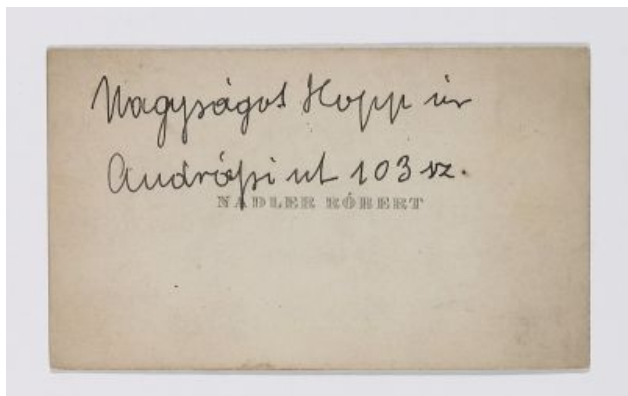 Nagyságos Hopp úr
Andrássi ut 103 sz.
NADLER RÓBERT